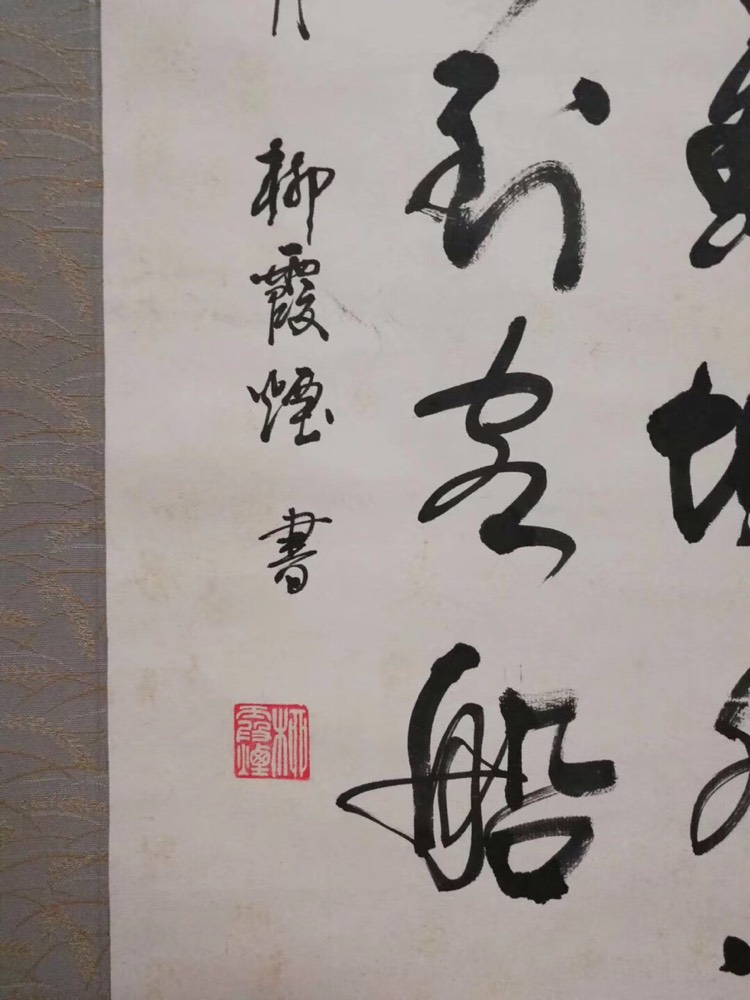 到客船
柳霞煙書
柳霞煙